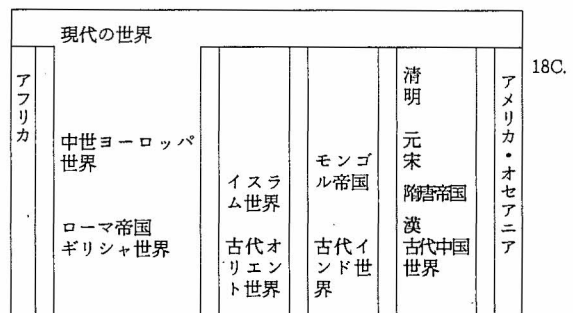 現代の世界
18C.
アフリカ
中世ヨーロッパ
世界
ローマ帝国
ギリシャ世界
イスラ
ム世界
古代オ
リエン
ト世界
モンゴ
ル帝国
古代イ
ンド世
界
清
明
元
宋
隋唐帝国
漢
古代中国
世界
アメリカ・オセアニア